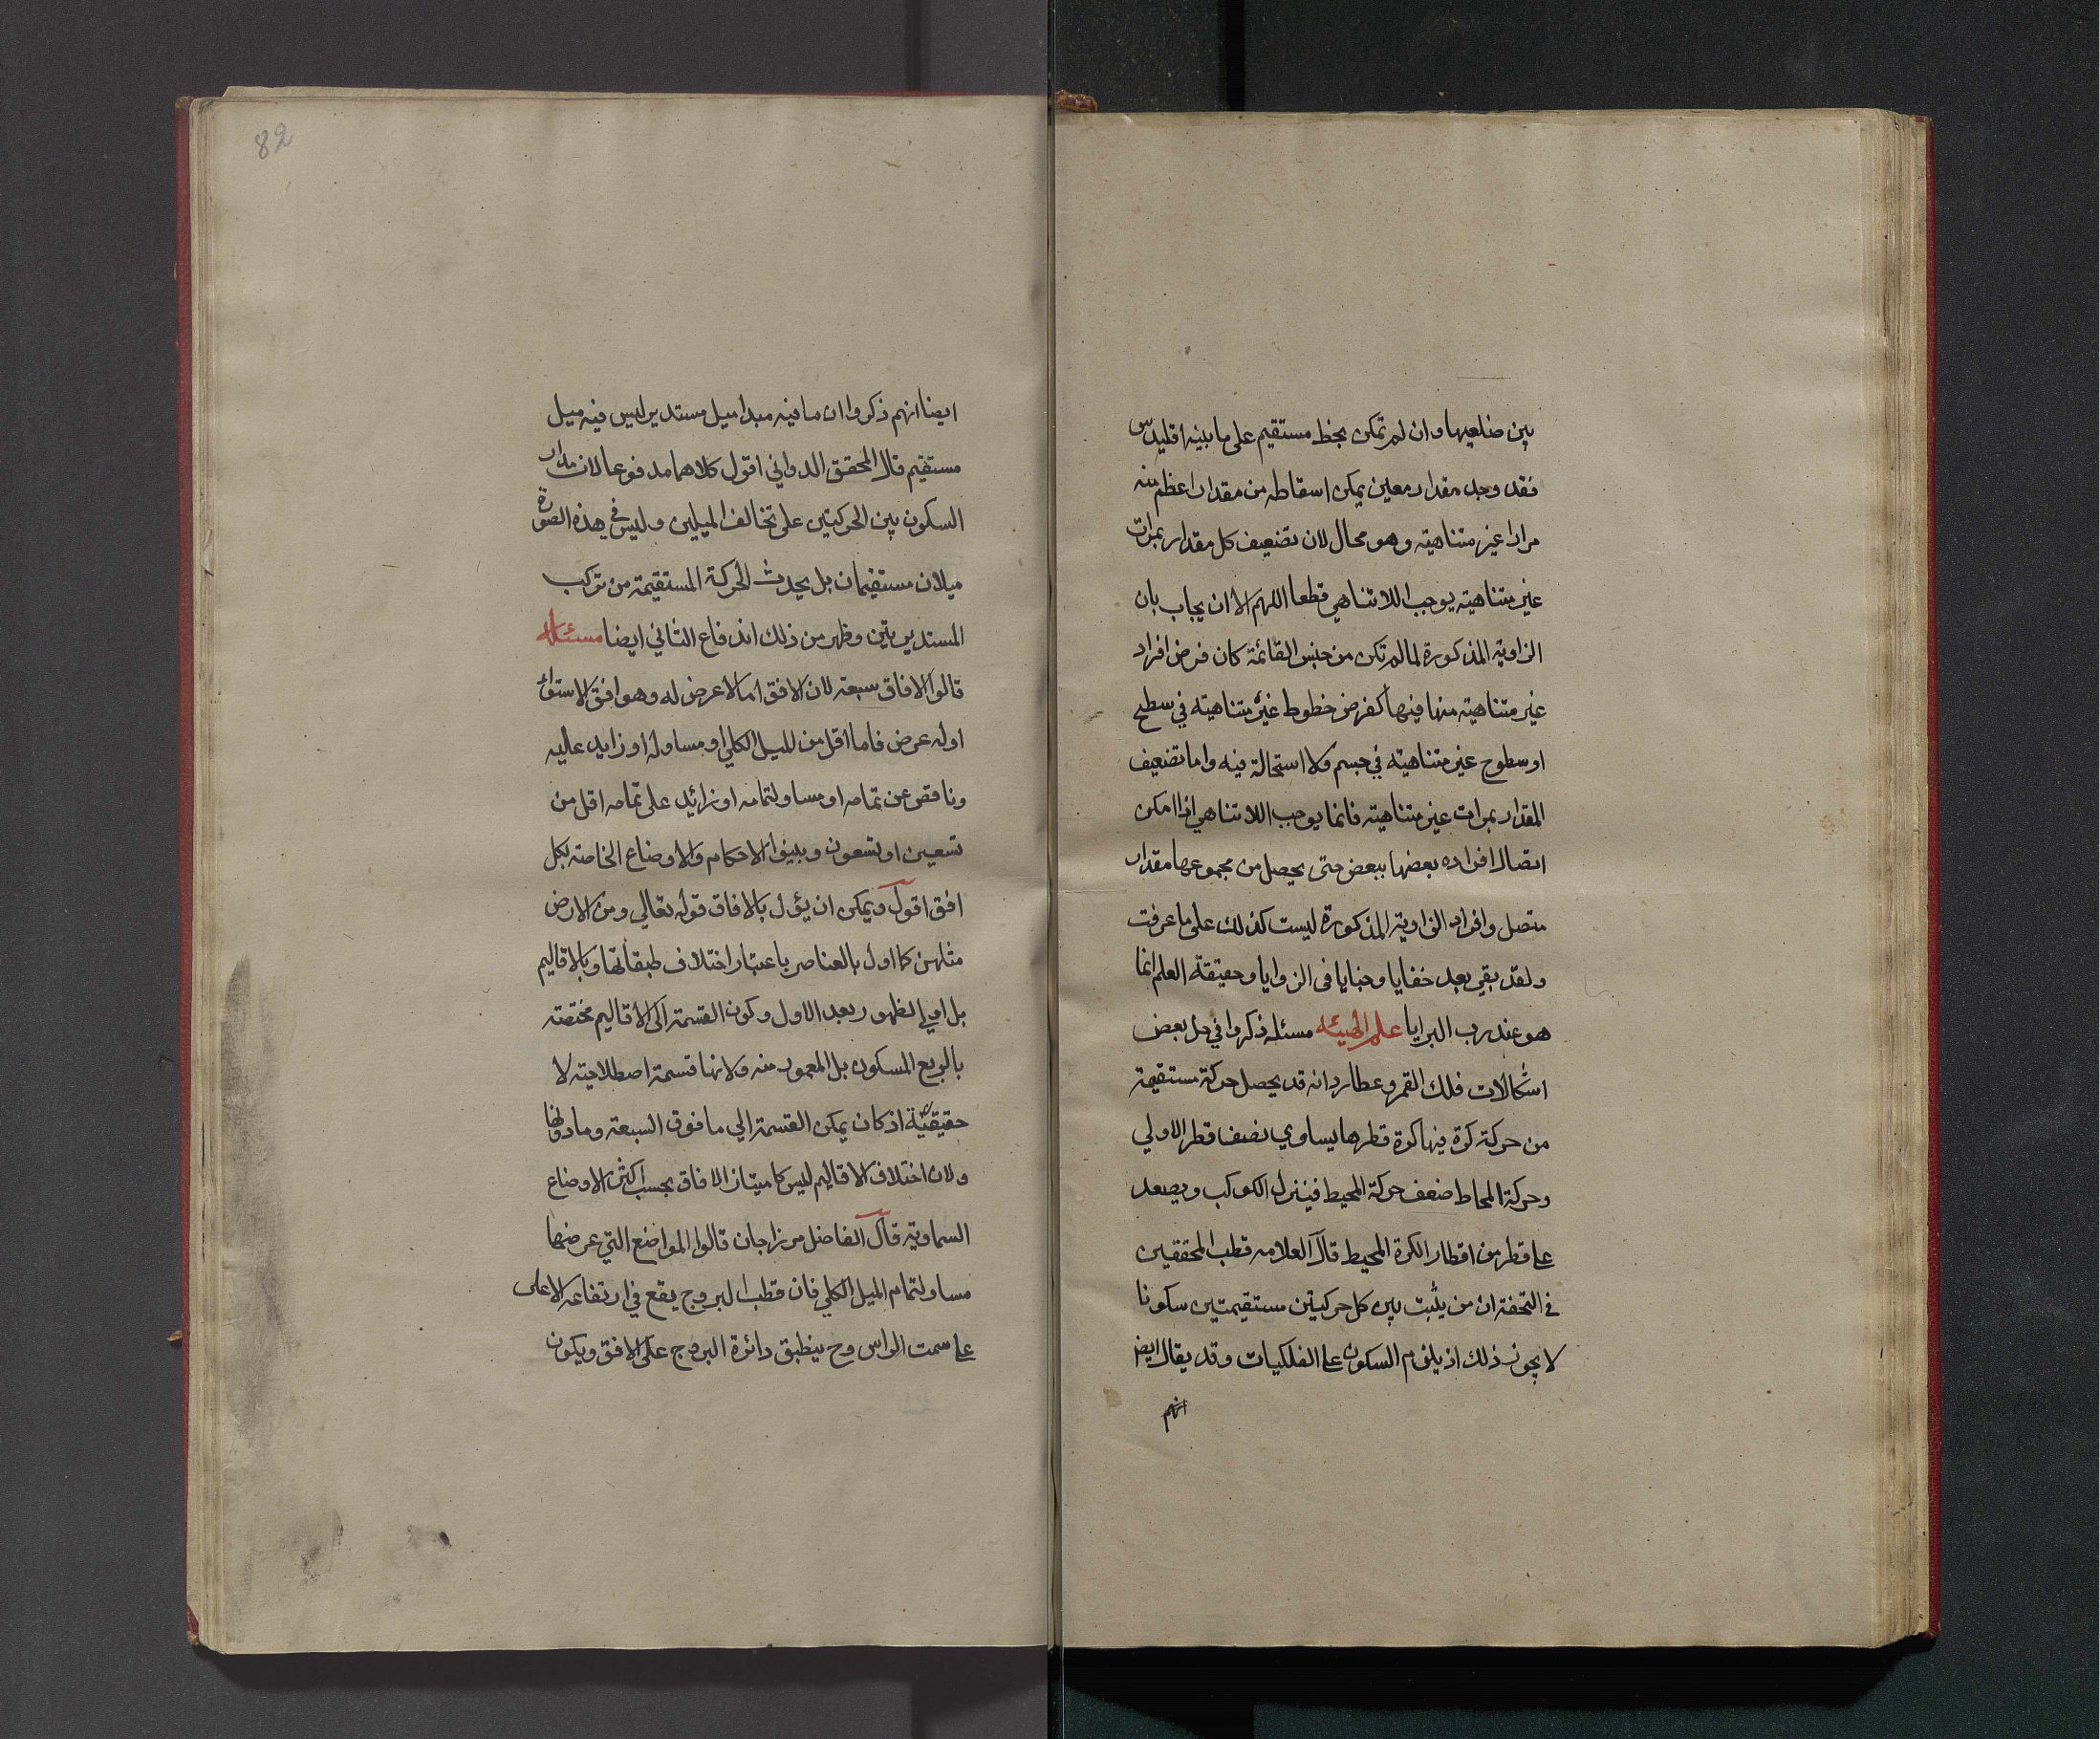 بين ضلعيها وان لم تمكن بخط مستقيم على ما بينه اقليدس
فقد وجد مقدار معين يمكن اسقاطه من مقدار اعظم منه
مرارا غير متناهية وهو محال لان تضعيف كل مقدار بمرات
غير متناهية يوجب اللا تناهي قطعا اللهم الا ان يجاب بان
الزاوية المذكورة لما لم تكن من جنس القائمة كان فرض افراد
غير متناهية منها فيها كفرض خطوط غير متناهية في سطح
او سطوح غير متناهية في جسم ولا استحالة فيه واما تضعيف
المقدار بمرات غير متناهية فانما يوجب اللا تناهي اذا امكن
اتصال افراده بعضها ببعض حتى يحصل من مجموعها مقدار
متصل وافراد الزاوية المذكورة ليست كذلك على ما عرفت
ولقد بقي بعد خفايا وخبايا فى الزوايا وحقيقة العلم انما
هو عند رب البرايا علم الهيئه مسئله ذكروا في حل بعض
اشكالات فلك القمر وعطارد انه قد يحصل حركة مستقيمة
من حركة كرة فيها كرة قطرها يساوي نصف قطر الاولي
وحركة المحاط ضعف حركة المحيط فينزل الكوكب ويصعد
على قطر من اقطار الكرة المحيط قال العلامه قطب المحققين
في التحفة ان من يثبت بين كل حركتين مستقيمتين سكونا
لا يجوز ذلك اذ يلزم السكون على الفلكيات وقد يقال ايضا
انهم
82
ايضا انهم ذكروا ان ما فيه مبدا ميل مستدير ليس فيه ميل
مستقيم قال المحقق الدواني اقول كلاهما مدفوعا لان مدار
السكون بين الحركتين على تخالف الميلين وليس في هذه الصورة
ميلان مستقيمان بل يحدث الحركة المستقيمة من تركب
المستديرتين وظهر من ذلك اندفاع الثاني ايضا مسئله
قالوا الافاق سبعة لان الافق اما لا عرض له وهو افق الاستواء
اوله عرض فاما اقل من الميل الكلي او مساو له او زايد عليه
وناقص عن تمامه او مساو لتمامه او زائد على تمامه اقل من
تسعين او تسعون وبينوا الاحكام والاوضاع الخاصة بكل
افق اقول ويمكن ان يؤل بالافاق قوله تعالي ومن الارض
مثلهن كما اول بالعناصر باعتبار اختلاف طبقاتها وبالاقاليم
بل اولي لظهور بعد الاول وكون القسمة الى الاقاليم مختصة
بالربع المسكون بل المعمور منه ولانها قسمة اصطلاحية لا
حقيقية اذ كان يمكن القسمة الي ما فوق السبعة وما دونها
ولان اختلاف الاقاليم ليس كامتياز الافاق بحسب اكثر الاوضاع
السماوية قال الفاضل مرزاجان قالوا المواضع التي عرضها
مساو لتمام الميل الكلي فان قطب البروج يقع في ارتفاعه الاعلى
على سمت الراس وح ينطبق دائرة البروج على الافق ويكون